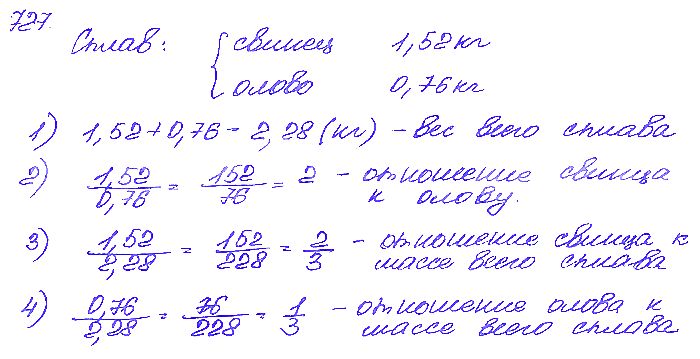 727.
Сплав: { свинец 1,52 кг
олово 0,76 кг
1) 1,52 + 0,76 = 2,28 (кг) – вес всего сплава
2) 1,52/0,76 = 152/76 = 2 – отношение свинца
к олову.
3) 1,52/2,28 = 152/228 = 2/3 – отношение свинца к
массе всего сплава
4) 0,76/2,28 = 76/228 = 1/3 – отношение олова к
массе всего сплава